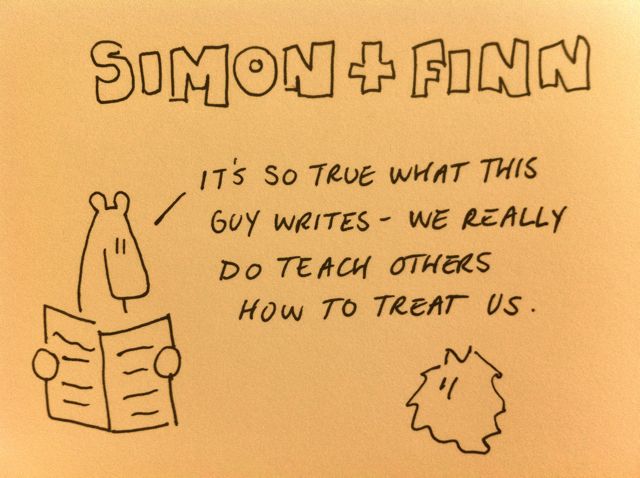 SIMON + FINN
IT'S SO TRUE WHAT THIS
GUY WRITES - WE REALLY
DO TEACH OTHERS
HOW TO TREAT US.